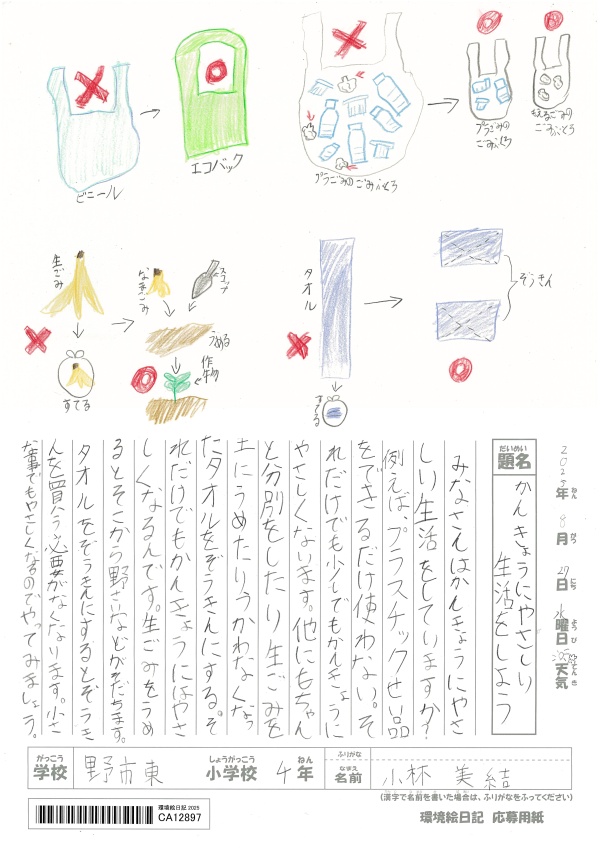 ビニール
エコバック
プラごみのごみぶくろ
プラごみの
ごみぶくろ
もえるごみの
ごみぶくろ
生ごみ
すてる
なまごみ
スコップ
うめる
作物
タオル
すてる
ぞうきん
2025年 8月 27日 水曜日 天気
ねん がつ にち ようび てんき
だいめい
題名
かんきょうにやさしい
生活をしよう
みなさんはかんきょうにやさ
しい生活をしていますか?
例えばプラスチックせい品
をできるだけ使わない。そ
れだけでも少しでもかんきょうに
やさしくないます。他にもちゃん
と分別をしたり生ごみを
土にうめたりつかわなくなっ
たタオルをぞうきんにする。そ
れだけでもかんきょうにはやさ
しくなるんです。生ごみをうめ
るとそこから野さいなどがそだちます。
タオルをぞうきんにするとぞうき
んを買う必要がなくなります。小さ
な事でもやさしくなるのでやってみましょう。
がっこう
学校
野市東
しょうがっこう
小学校
4年
ねん
ふりがな
なまえ
名前
小林 美結
(漢字で名前を書いた場合は、ふりがなをふってください)
環境絵日記 2025
CA12897
環境絵日記 応募用紙